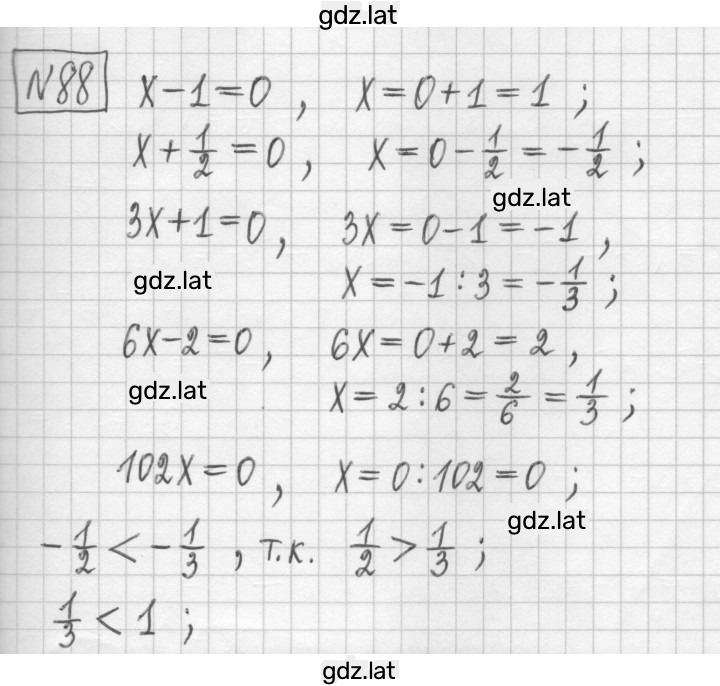 gdz.lat
N88 x-1=0, x=0+1=1;
x+1/2=0, x=0-1/2=-1/2;
gdz.lat
3x+1=0, 3x=0-1=-1,
gdz.lat
x=-1:3=-1/3;
6x-2=0, 6x=0+2=2,
gdz.lat
x=2:6=2/6=1/3;
102x=0, x=0:102=0;
gdz.lat
-1/2<-1/3, т.к. 1/2>1/3;
1/3<1;
gdz.lat